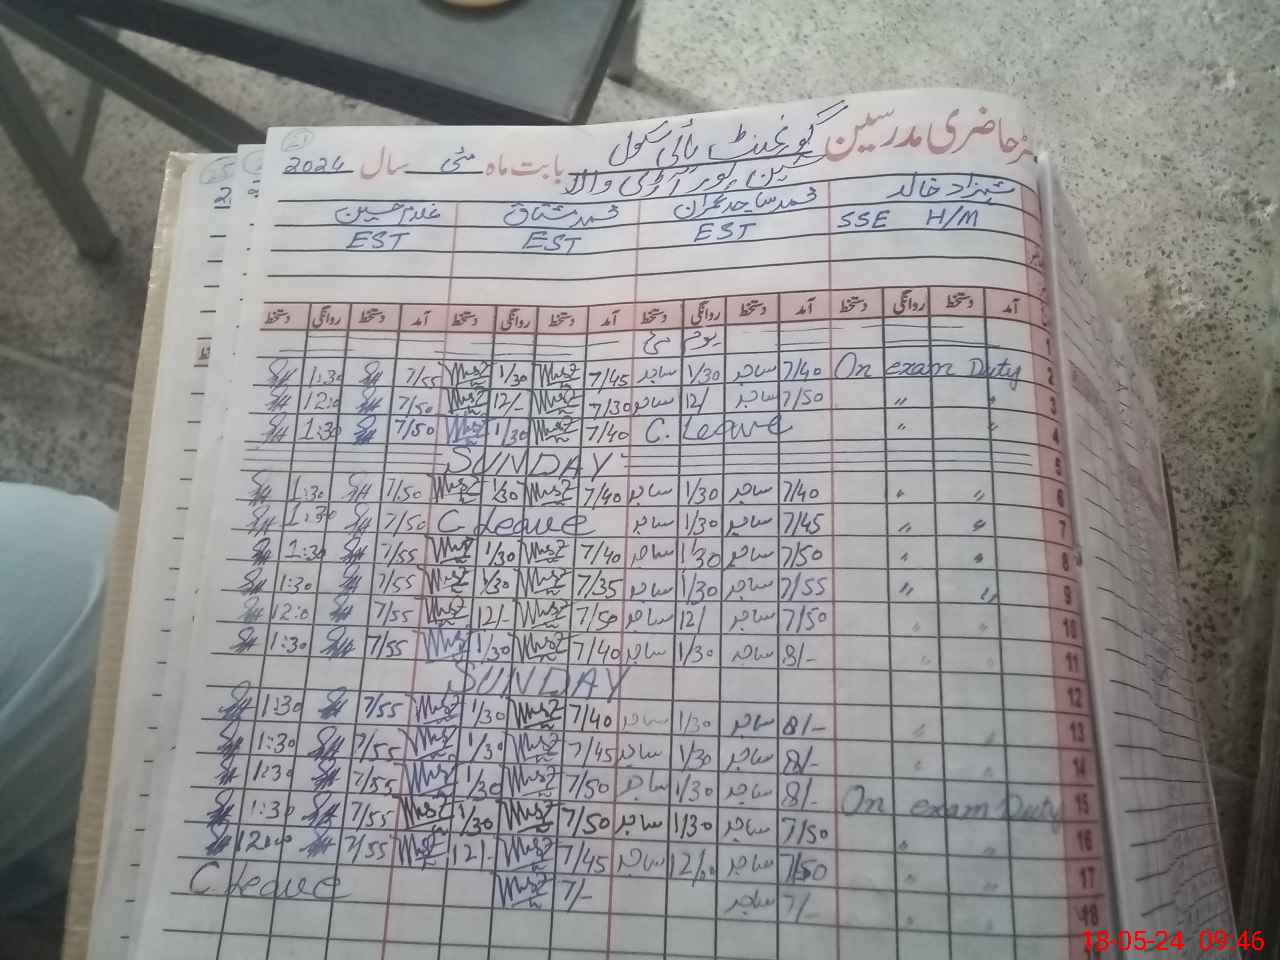 رجسٹر حاضری مدرسین گورنمنٹ ہائی سکول بابت ماہ مئی سال 2024
شہزاد خالد محمد ساجد عمران محمد مشتاق غلام حسین
SSE H/M EST EST EST
آمد دستخط روانگی دستخط آمد دستخط روانگی دستخط آمد دستخط روانگی دستخط آمد دستخط روانگی دستخط
1 یوم مئی
2 On exam Duty 7/40 ساجد 1/30 ساجد 7/45 1/30 7/55 1:30
3 " " 7/50 ساجد 12/ ساجد 7/30 12/- 7/50 12:0
4 " " C. Leave 7/40 1/30 7/50 1:30
5 SUNDAY
6 " " 7/40 ساجد 1/30 ساجد 7/40 1/30 7/50 1:30
7 " " 7/45 ساجد 1/30 ساجد C. Leave 7/50 1:30
8 " " 7/50 ساجد 1/30 ساجد 7/40 1/30 7/55 1:30
9 " " 7/55 ساجد 1/30 ساجد 7/35 1/30 7/55 1:30
10 " " 7/50 ساجد 12/ ساجد 7/50 12/- 7/55 12:0
11 " " 8/- ساجد 1/30 ساجد 7/40 1/30 7/55 1:30
12 SUNDAY
13 " " 8/- ساجد 1/30 ساجد 7/40 1/30 7/55 1:30
14 " " 8/- ساجد 1/30 ساجد 7/45 1/30 7/55 1:30
15 On exam Duty 8/- ساجد 1/30 ساجد 7/50 1/30 7/55 1:30
16 " " 7/50 ساجد 1/30 ساجد 7/50 1/30 7/55 1:30
17 " " 7/50 ساجد 12/ ساجد 7/45 12/- 7/55 12:0
18 " " 7/- ساجد 7/- C. Leave
18-05-24 09:46